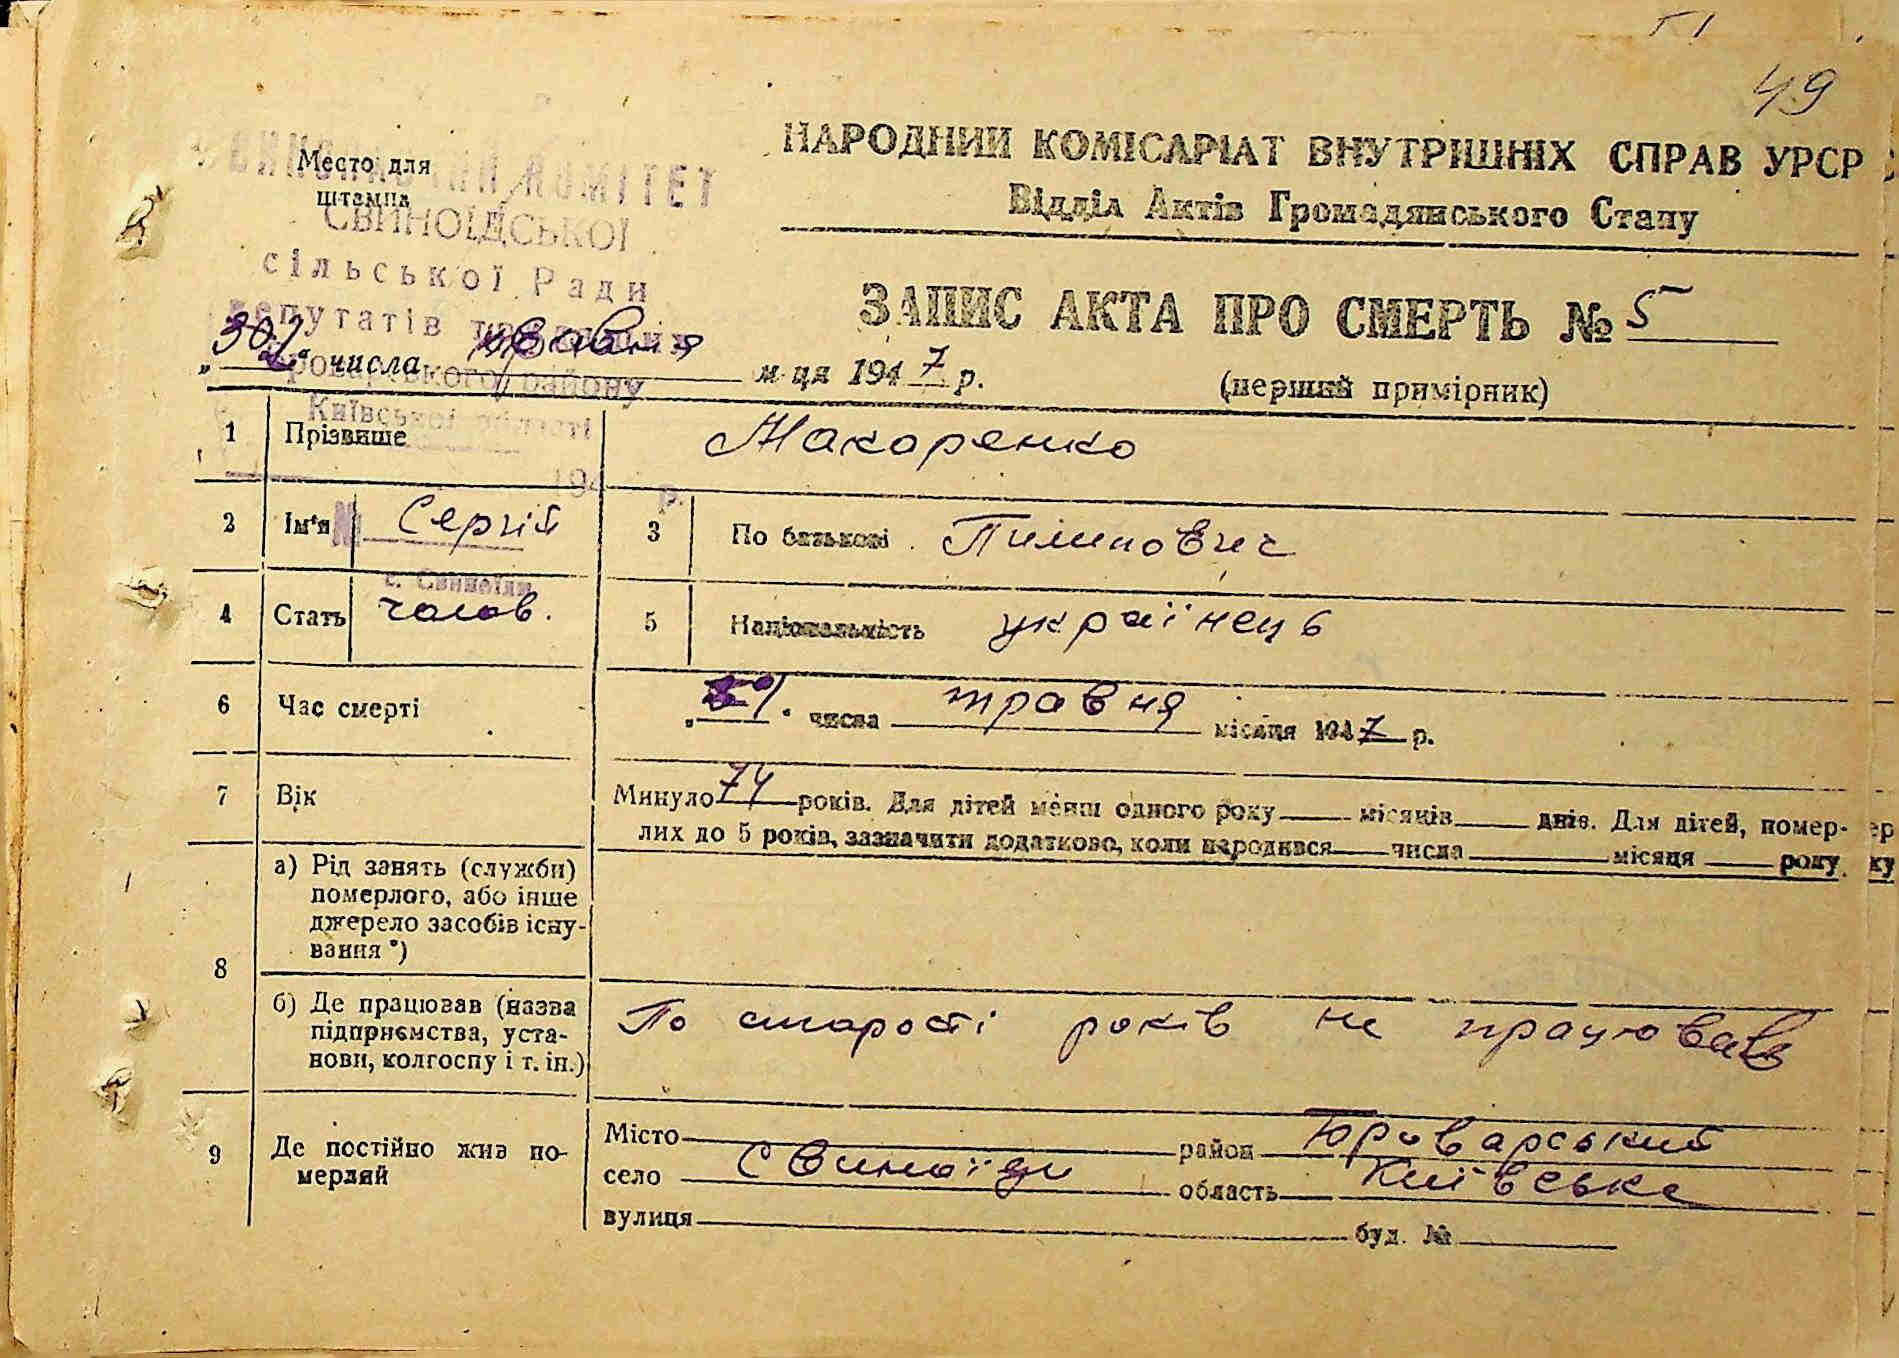 49
НАРОДНИЙ КОМІСАРІАТ ВНУТРІШНІХ СПРАВ УРСР
Відділ Актів Громадянського Стану
Место для
штампа
ВИКОНАВЧИЙ КОМІТЕТ
СВИНОЇДСЬКОЇ
сільської Ради
депутатів трудящих
Броварського району
Київської області
194 р.
№
с. Свиноїди
ЗАПИС АКТА ПРО СМЕРТЬ № 5
" числа травня м-ця 1947 р.
(перший примірник)
1 Прізвище Макаренко
2 Ім'я Сергій 3 По батькові Пилипович
4 Стать чолов. 5 Національність українець
6 Час смерті " " числа травня місяця 1947 р.
7 Вік Минуло 74 років. Для дітей менш одного року місяців днів. Для дітей, помер-
лих до 5 років, зазначити додатково, коли народився числа місяця року
8 а) Рід занять (служби)
померлого, або інше
джерело засобів існу-
вання *)
б) Де працював (назва
підприємства, уста-
нови, колгоспу і т. ін.)
По старості років не працював
9 Де постійно жив по-
мерлий
Місто район Броварський
село Свиноїди область Київська
вулиця буд. №